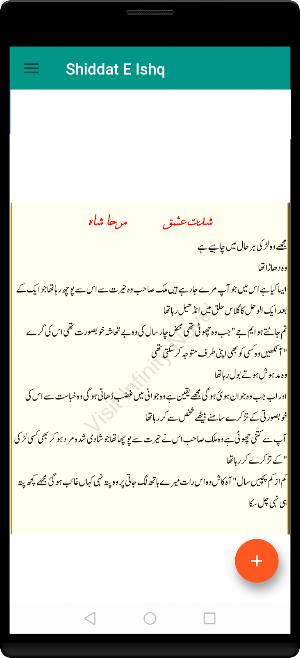 Shiddat E Ishq
شدت عشق مرحا شاہ
مجھے وہ لڑکی ہر حال میں چاہیے ہے
وہ دھاڑا تھا
ایسا کیا ہے اس میں جو آپ مرے جارہے ہیں ملک صاحب وہ حیرت سے اس سے پوچھ رہا تھا جو ایک کے
بعد ایک الوحل کا گلاس حلق میں انڈھیل رہا تھا
تم جانتے ہو ایم جے "جب وہ چھوٹی تھی محض چار سال کی وہ بے تحاشہ خوبصورت تھی اس کی گرے
آنکھیں وہ کسی کو بھی اپنی طرف متوجہ کر سکتی تھی"
وہ مدہوش ہوتے بول رہا تھا
اور اب جب وہ جوان ہوئ ہوگی مجھے یقین ہے وہ جوانی میں غضب ڈھاتی ہوگی وہ خباست سے اس کی
خوبصورتی کے تزکرے سامنے بیٹھے شخص سے کر رہا تھا
آپ سے کتنی چھوٹی ہے وہ ملک صاحب اس نے حیرت سے پوچھا تھا جو شادی شدہ مرد ہو کر بھی کسی لڑکی
کے تزکرے کر رہا تھا"
کم از کم پچیس سال" آہ کاش وہ اس رات میرے ہاتھ لگ جاتی پر وہ پتہ نہی کہاں غائب ہوگئ مجھے کچھ پتہ
ہی نہی چل سکا
Visit Infinity Novel